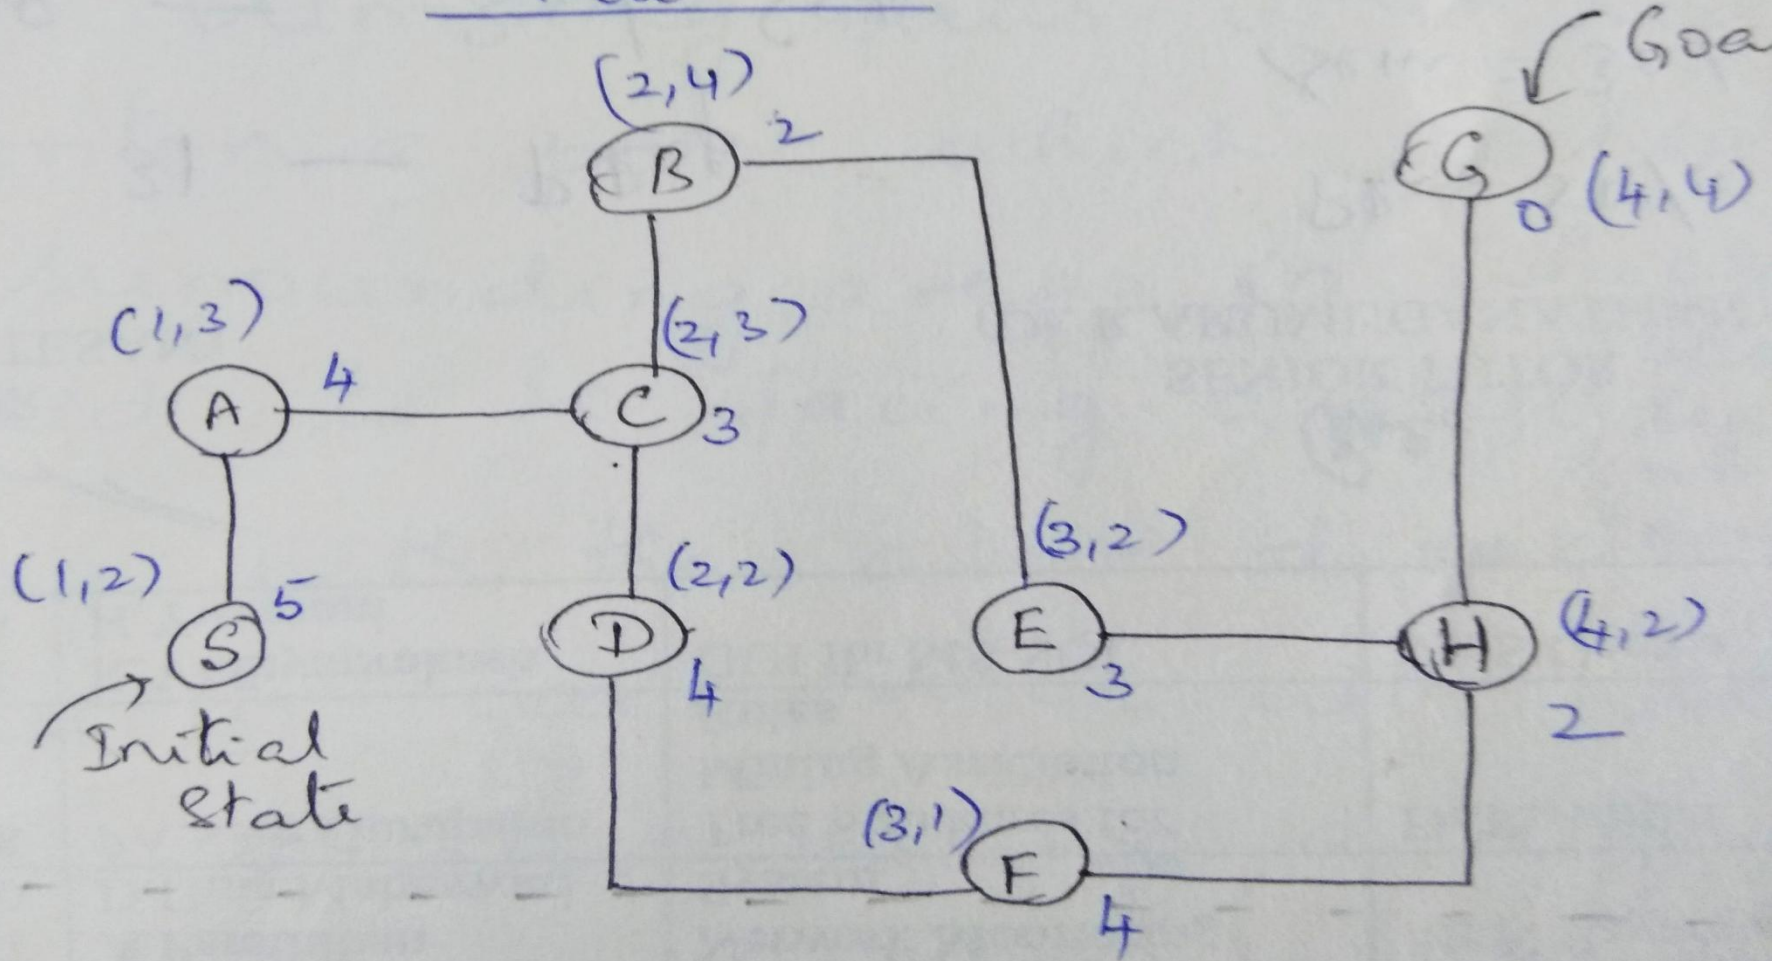 Goa
(2,4)
B 2
G
0 (4,4)
(1,3)
(2,3)
A 4
C 3
(1,2)
S 5
(2,2)
D
4
(3,2)
E
3
H (4,2)
2
Initial
State
(3,1)
F
4